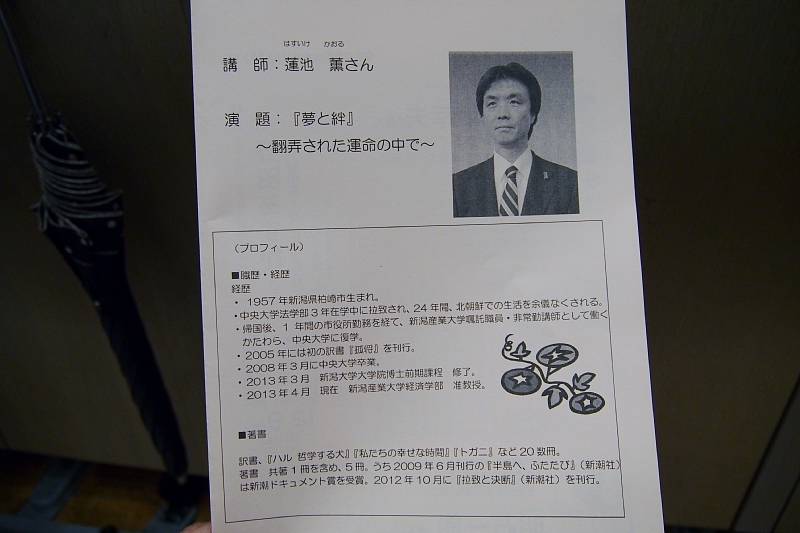 はすいけ かおる
講 師：蓮池 薫さん
演 題：『夢と絆』
～翻弄された運命の中で～
（プロフィール）
■職歴・経歴
経歴
・ 1957年新潟県柏崎市生まれ。
・中央大学法学部3年在学中に拉致され、24年間、北朝鮮での生活を余儀なくされる。
・帰国後、1年間の市役所勤務を経て、新潟産業大学嘱託職員・非常勤講師として働く
かたわら、中央大学に復学。
・2005年には初の訳書『孤将』を刊行。
・2008年3月に中央大学卒業。
・2013年3月 新潟大学大学院博士前期課程 修了。
・2013年4月 現在 新潟産業大学経済学部 准教授。
■著書
訳書、『ハル 哲学する犬』『私たちの幸せな時間』『トガニ』など20数冊。
著書 共著1冊を含め、5冊。うち2009年6月刊行の『半島へ、ふたたび』（新潮社）
は新潮ドキュメント賞を受賞。2012年10月に『拉致と決断』（新潮社）を刊行。